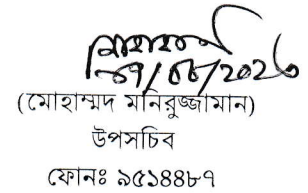 (মোহাম্মদ মনিরুজ্জামান)
উপসচিব
ফোনঃ ৯৫১৪৪৮৭